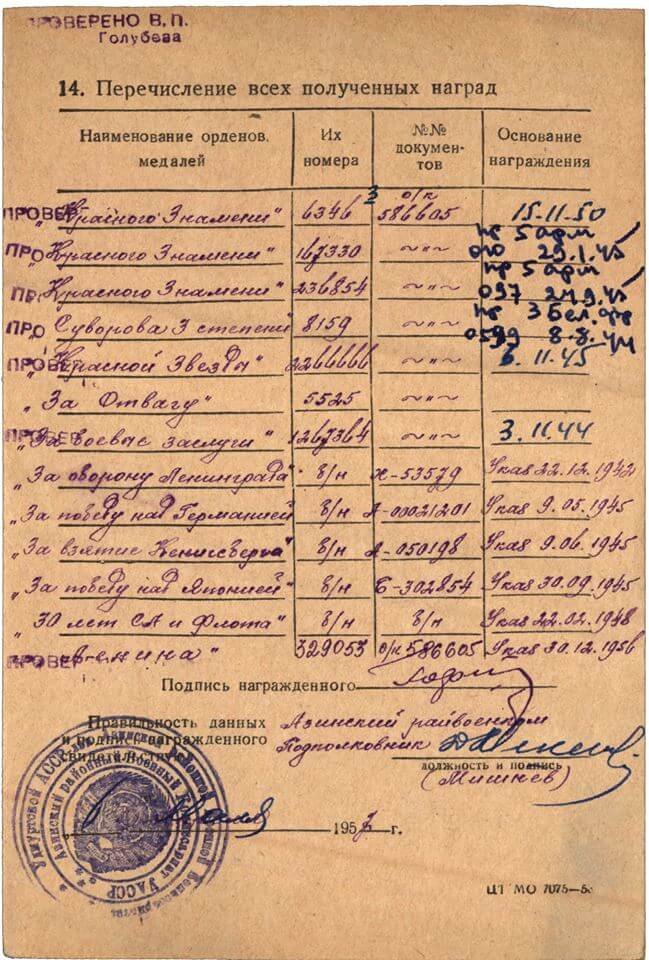 ПРОВЕРЕНО В. П.
Голубева
14. Перечисление всех полученных наград
Наименование орденов, медалей
Их номера
№№ документов
Основание награждения
ПРОВЕР „Красного Знамени" 6346 3 о/к 586605 15.11.50
ПРО „Красного Знамени" 167330 ~"~ пр 5 арм 010 29.1.45
ПРО „Красного Знамени" 236854 ~"~ пр 5 арм 097
ПРО „Суворова 3 степени" 8159 ~"~ пр 3 Бел. фр 0599 8.8.44
ПРОВЕР „Красной Звезды" 2266666 ~"~ 6.11.45
„За Отвагу" 5525 ~"~
ПРОВЕР „За боевые заслуги" 1267364 ~"~ 3.11.44
„За оборону Ленинграда" б/н Х-53579 Указ 22.12.1942
„За победу над Германией" б/н А-00021201 Указ 9.05.1945
„За взятие Кенигсберга" б/н А-050198 Указ 9.06.1945
„За победу над Японией" б/н Б-302854 Указ 30.09.1945
„30 лет СА и Флота" б/н б/н Указ 22.02.1948
ПРОВЕР „Ленина" 329053 о/к 586605 Указ 30.12.1956
Подпись награжденного
Правильность данных Азинский райвоенком
и подпись награжденного Подполковник
свидетельствую
должность и подпись
(Мишнев)
195 г.
Азинский районный Военный Комиссариат УАССР
ЦТ МО 7075—5